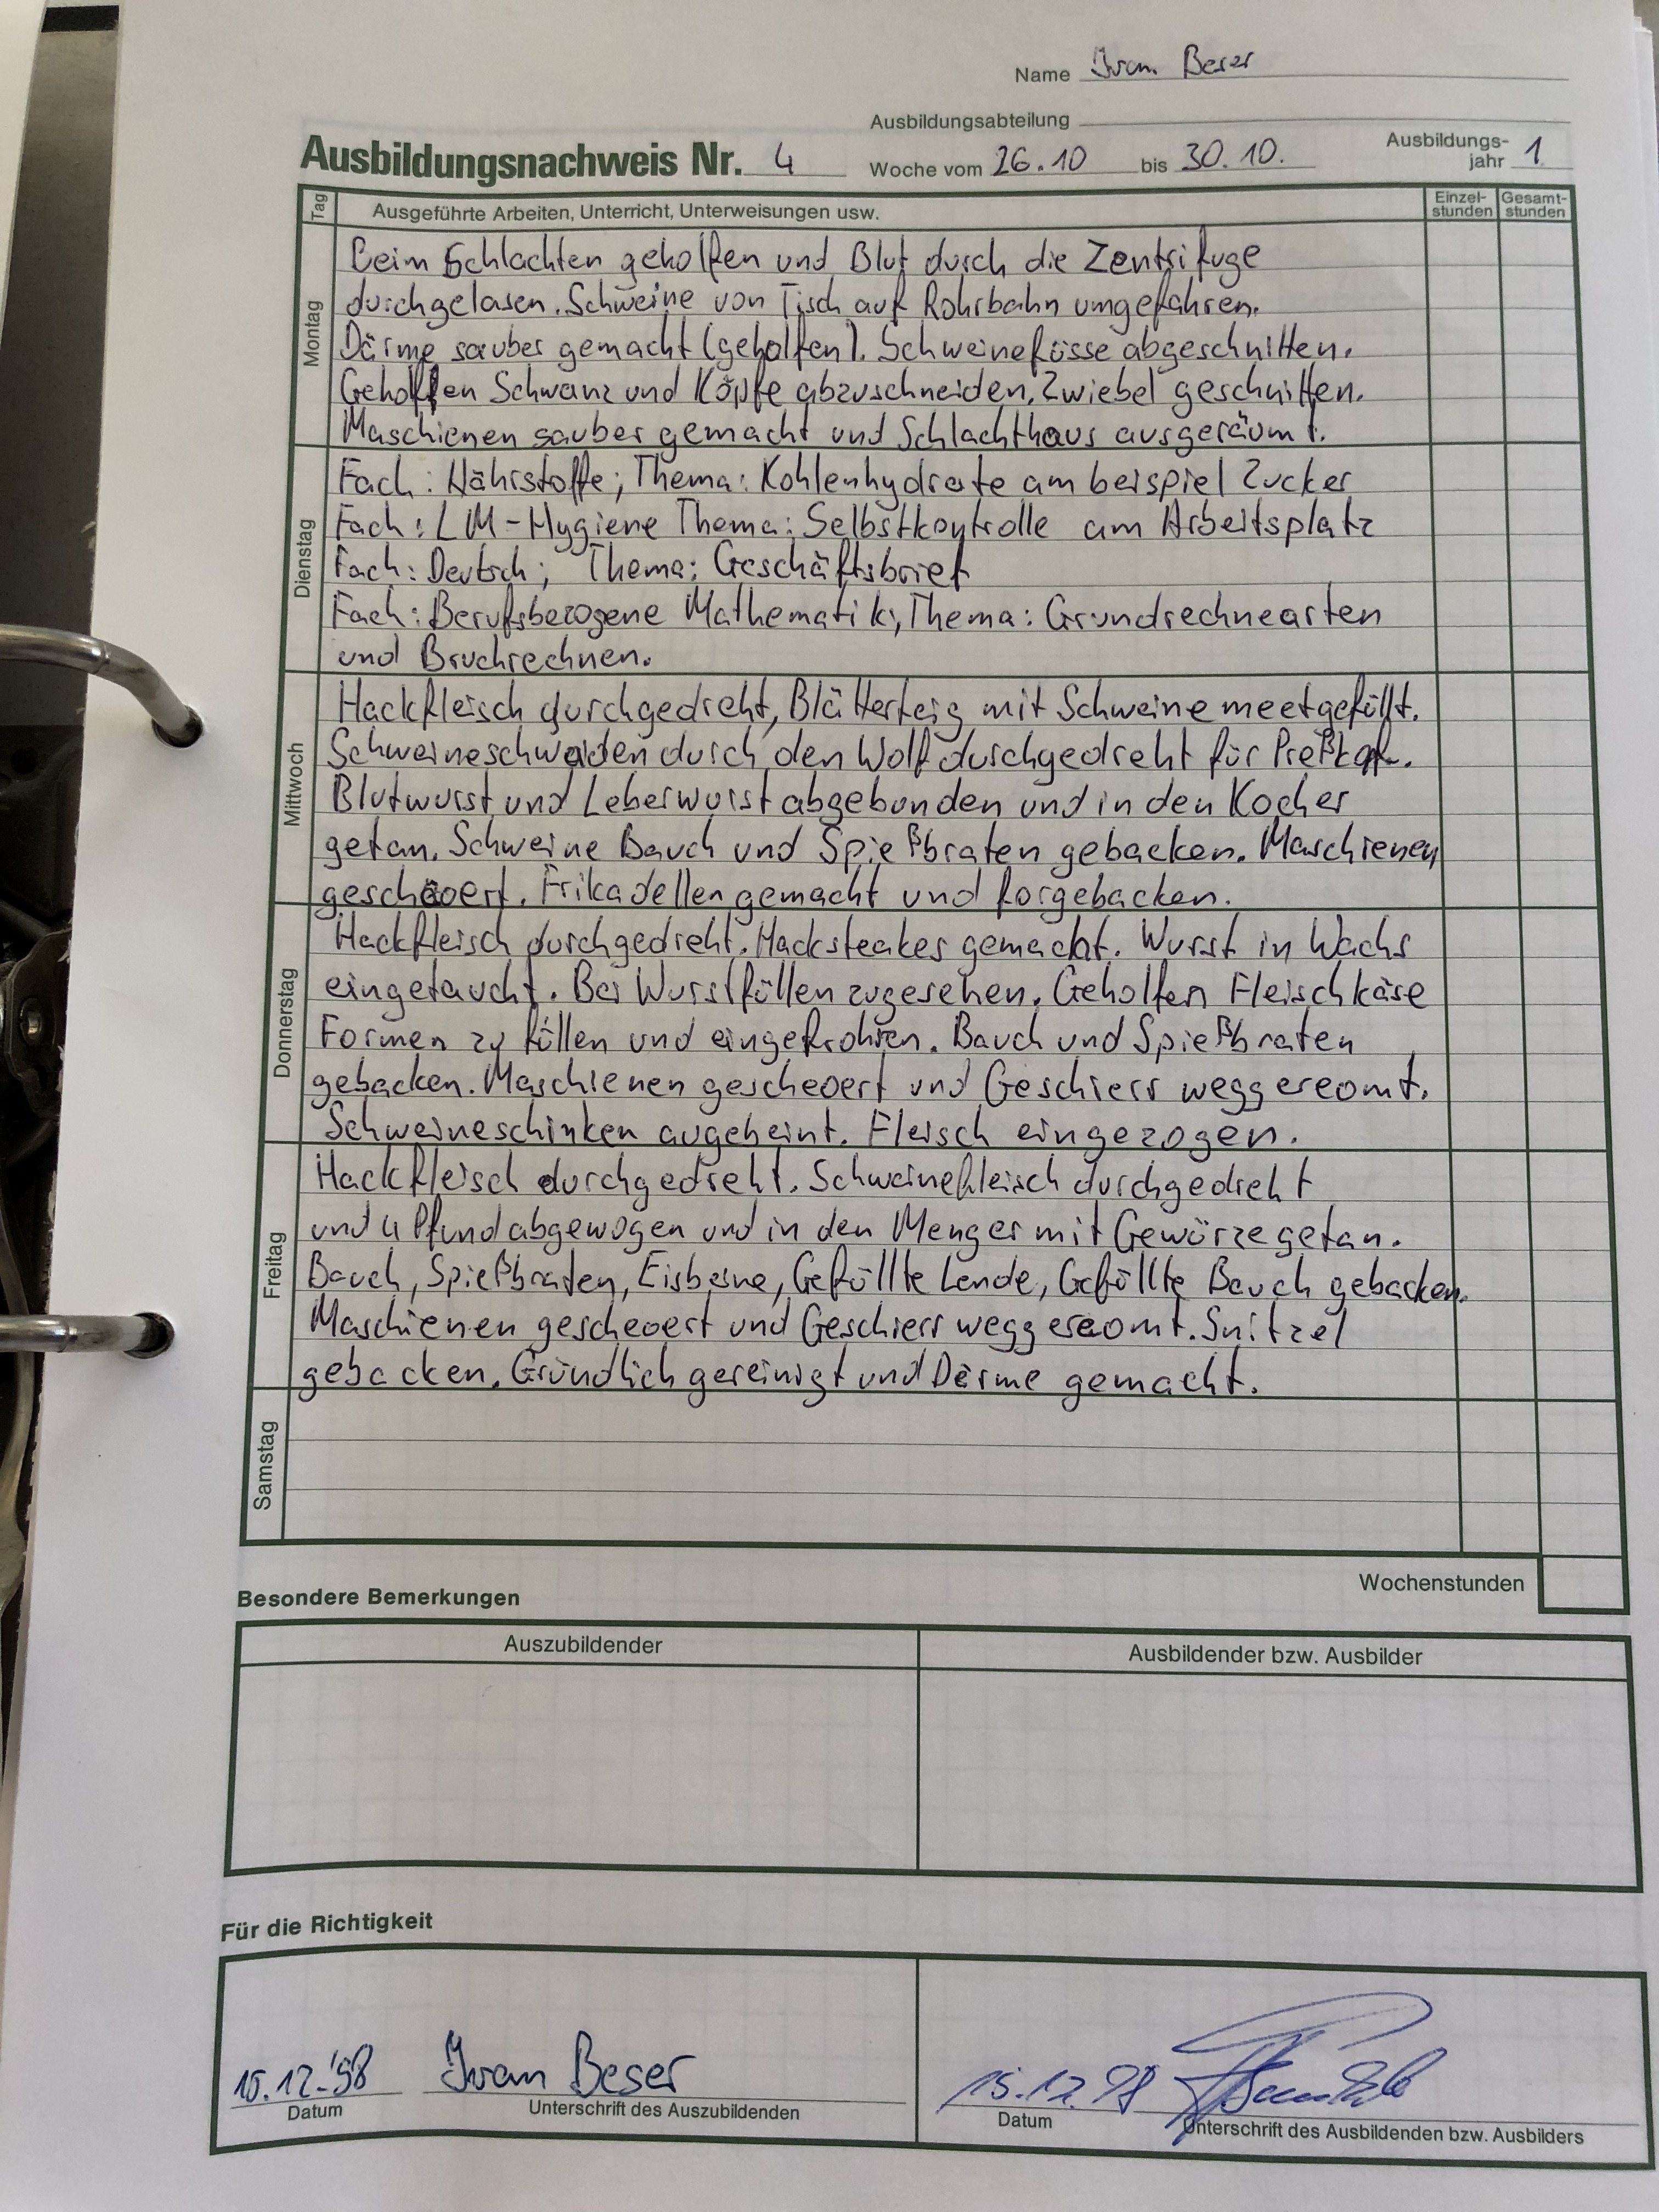 Name Ivan Beser
Ausbildungsabteilung
Ausbildungsnachweis Nr. 4 Woche vom 26.10 bis 30.10. Ausbildungs-
jahr 1
Tag Ausgeführte Arbeiten, Unterricht, Unterweisungen usw. Einzel-
stunden Gesamt-
stunden
Montag
Beim Schlachten geholfen und Blut durch die Zentrifuge
durchgelasen. Schweine von Tisch auf Rohrbahn umgefahren.
Därme sauber gemacht (geholfen). Schweinefüsse abgeschnitten.
Geholfen Schwanz und Köpfe abzuschneiden. Zwiebel geschnitten.
Maschienen sauber gemacht und Schlachthaus ausgeräumt.
Dienstag
Fach: Nährstoffe; Thema: Kohlenhydrate am beispiel Zucker
Fach: LM-Hygiene Thema: Selbstkontrolle am Arbeitsplatz
Fach: Deutsch; Thema: Geschäftsbrief
Fach: Berufsbezogene Mathematik; Thema: Grundrechnearten
und Bruchrechnen.
Mittwoch
Hackfleisch durchgedreht, Blätterteig mit Schweine meet gefüllt.
durch den Wolf durchgedreht für
Blutwurst und Leberwurst abgebunden und in den Kocher
getan. Schweine Bauch und Spießbraten gebacken. Maschienen
gescheuert. Frikadellen gemacht und forgebacken.
Donnerstag
Hackfleisch durchgedreht. Hacksteakes gemacht. Wurst in Wachs
eingetaucht. Bei Wurstfüllen zugesehen. Geholfen Fleischkäse
Formen zu füllen und eingefrohren. Bauch und Spießbraten
gebacken. Maschienen gescheuert und Geschierr weggereumt.
Schweineschinken augeheint. Fleisch eingezogen.
Freitag
Hackfleisch durchgedreht. Schweinefleisch durchgedreht
und 4 Pfund abgewogen und in den Menger mit Gewürze getan.
Bauch, Spießbraten, Eisbeine, Gefüllte Lende, Gefüllte Bauch gebacken.
Maschienen gescheuert und Geschierr weggereomt. Snitzel
gebacken. Gründlich gereinigt und Därme gemacht.
Samstag
Wochenstunden
Besondere Bemerkungen
Auszubildender Ausbildender bzw. Ausbilder
Für die Richtigkeit
15.12.'98 Ivan Beser 15.12.98
Datum Unterschrift des Auszubildenden Datum Unterschrift des Ausbildenden bzw. Ausbilders